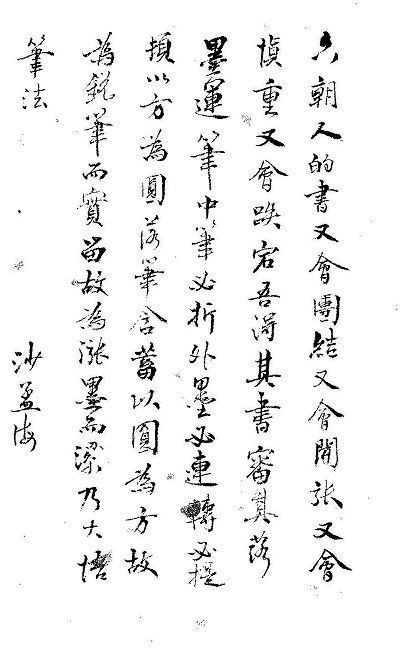 六朝人的書又會團結又會開張又會
慎重又會跌宕吾得其書審其落
墨運筆中筆必折外墨必連轉必提
頓以方為圓落筆含蓄以圓為方故
為銳筆而實留故為漲墨而潔乃大悟
筆法
沙孟海